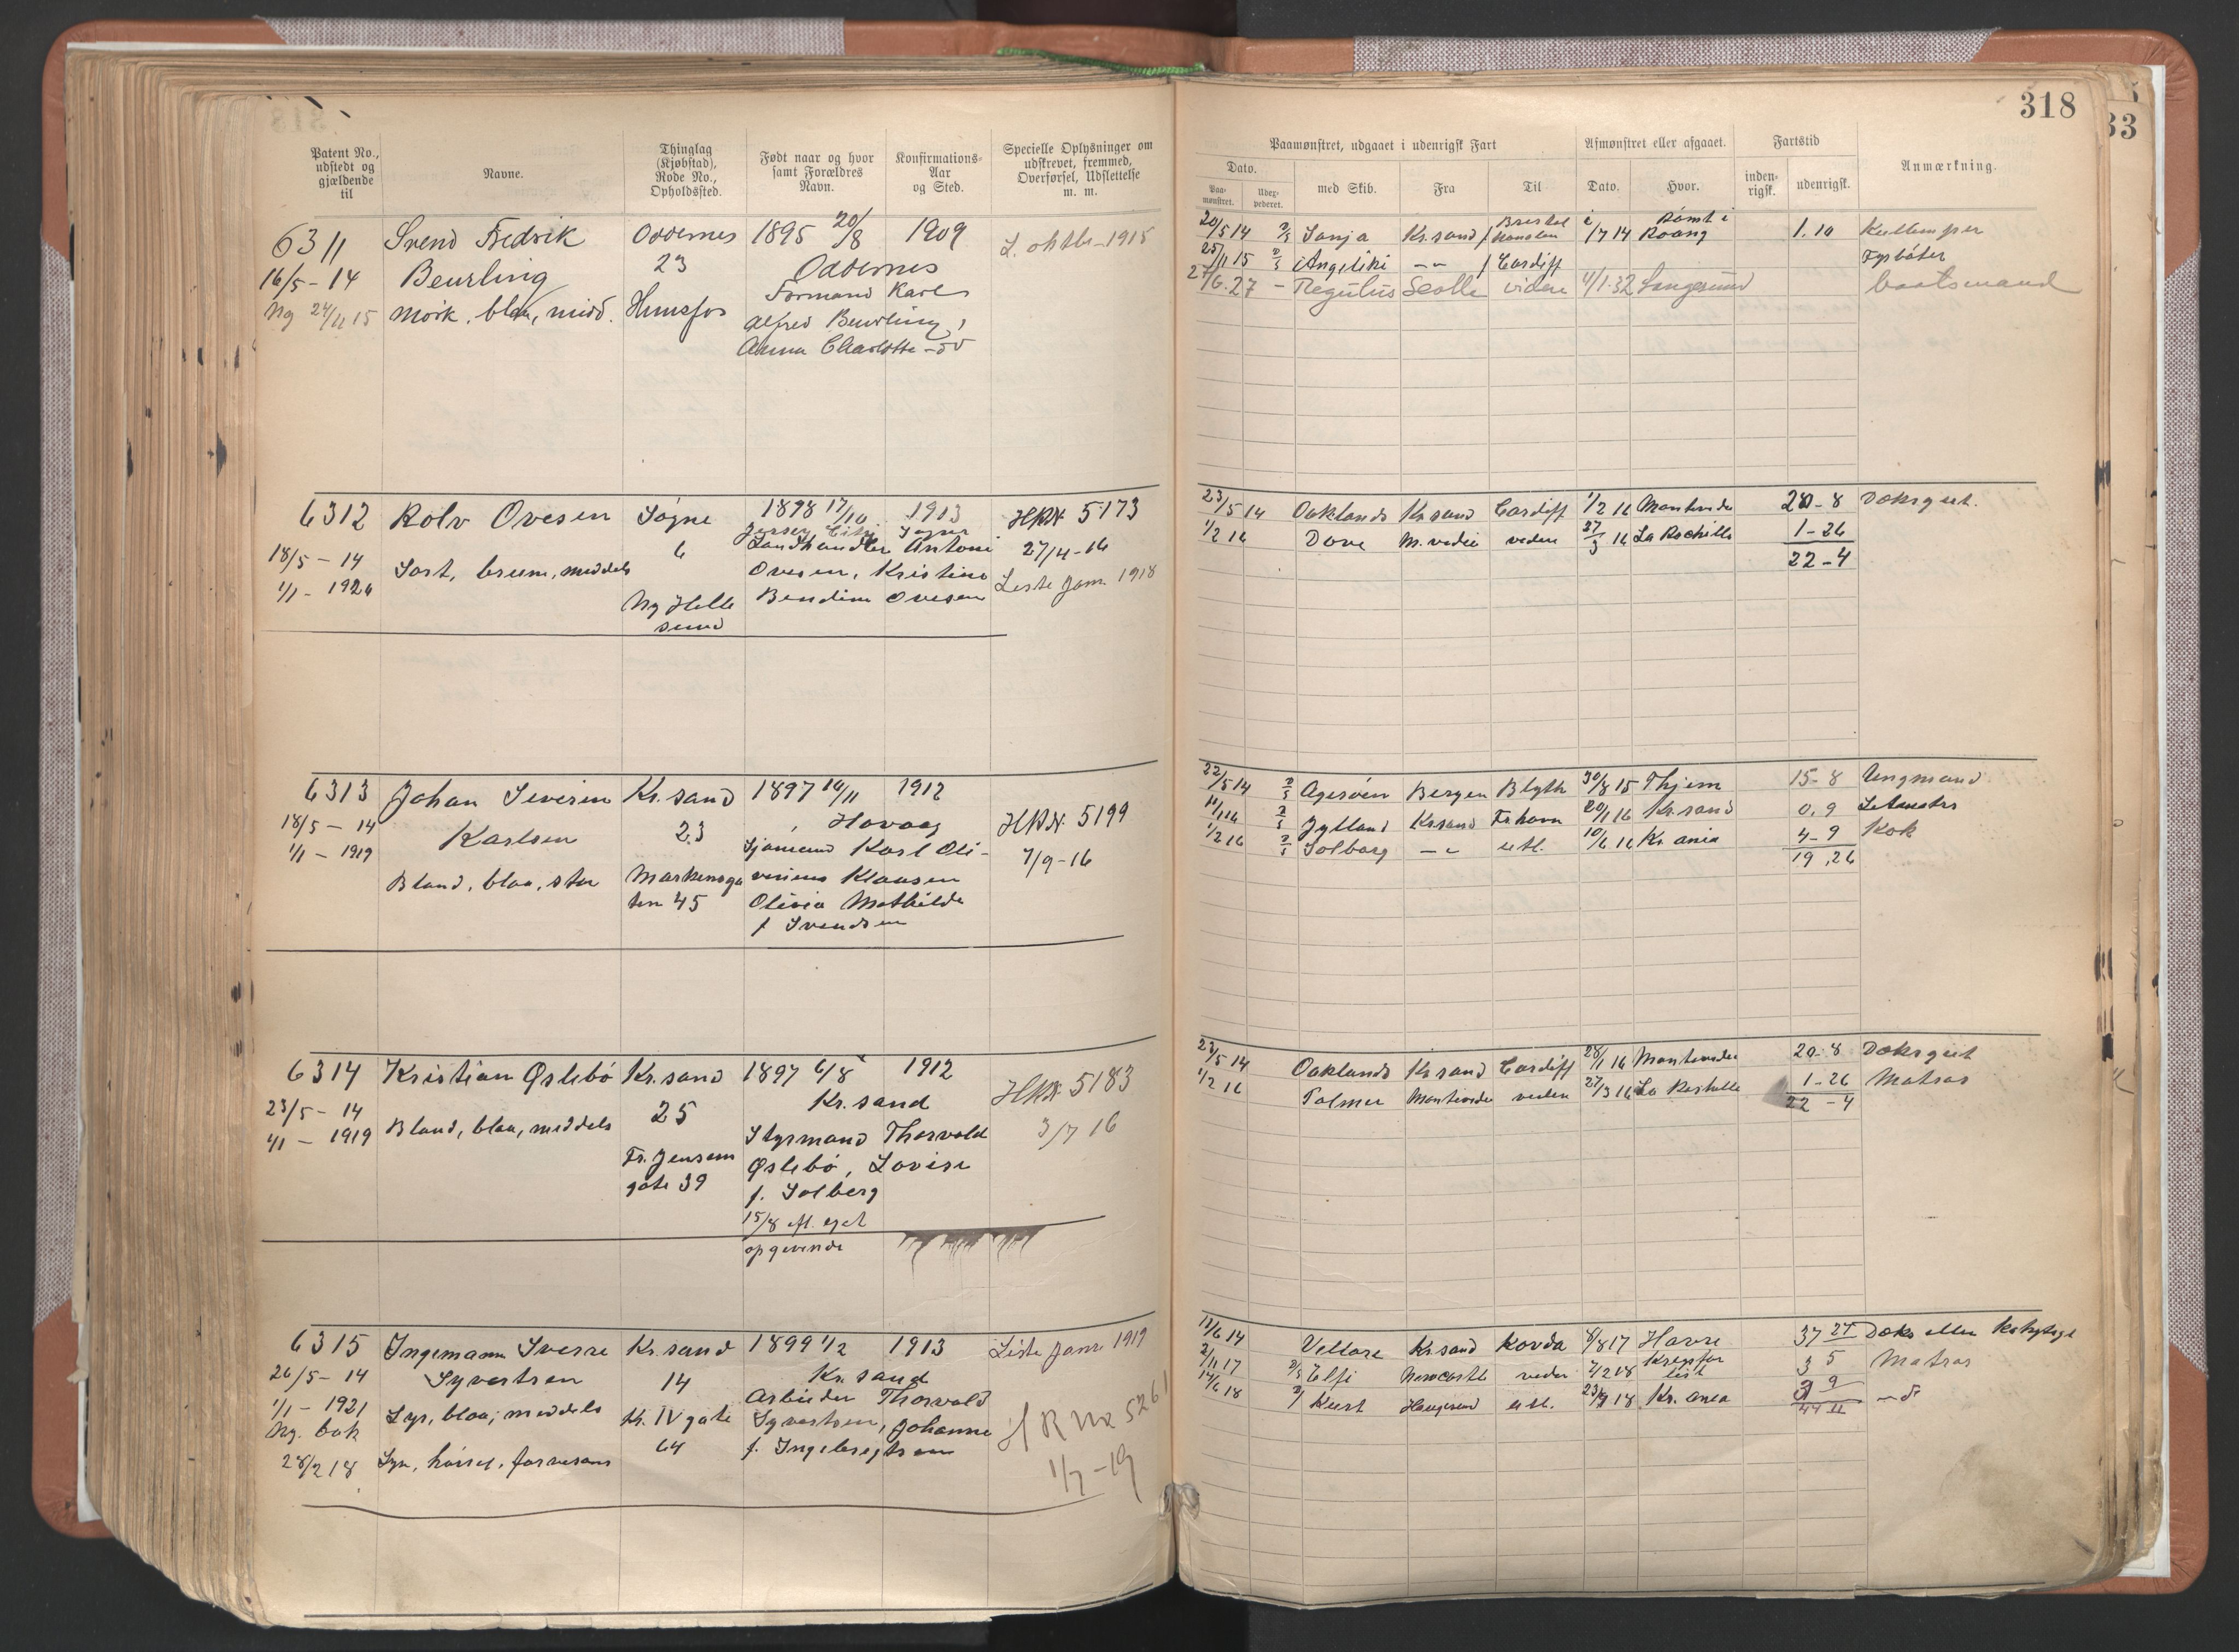 318
33
Patent No., udstedt og gjældende til
Navne.
Thinglag (Kjøbstad), Rode No., Opholdssted.
Født naar og hvor samt Forældres Navn.
Konfirmations-Aar og Sted.
Specielle Oplysninger om udskrevet, fremmed, Overførsel, Udslettelse m. m.
Paamønstret, udgaaet i udenrigsk Fart
Afmønstret eller afgaaet.
Fartstid
Anmærkning.
Dato.
Paa-mønstret.
Uder-pederet.
med Skib.
Fra
Til
Dato.
Hvor.
inden-rigsk.
udenrigsk.
6311 Svend Fredrik Oddernes 1895 20/8 1909
16/5 - 14 Beurling 23 Oddernes
Formand Karl
Ny 24/11 15 mörk, blaa, midd. Hunsfos Alfred Beurling,
Anna Charlotte
20/5 14 Sonja Kr.sand Bristol 1/7 14 Römt i 1.10 Kullemper
25/11 15 Angeliki Cardiff Fyrböter
27/6.27 - Regulus videre 4/1.32 Langesund baatsmand
6312 Rolv Ovesen Søgne 1898 17/10 1913 HRN 5173
Jersey City Søgne
18/5 - 14 6 Landhandler Antoni 27/4-16
Sort, brun, meddels Ovesen, Kristine
1/1 - 1920 Ny Helle Bendine Ovesen Liste Jan 1918
sund
23/5 14 Oaklands Kr.sand Cardiff 1/2 16 Montevideo 20-8 Dæksgut.
1/2 16 Dove M.vedio videre 27/3 16 La Rochelle 1-26
22-4
6313 Johan Severin Kr.sand 1897 16/11 1912
18/5 - 14 Karlsen 23 Høvaag HRN 5199
1/1 - 1919 Sjømand Karl Oli- 7/9-16
Blond, blaa, stor Markensga verius Klausen
ten 45 Olivia Mathilde
f Svendsen
22/5 14 Agerøen Bergen Blyth 30/8 15 Thjem 15-8 Ungmand
11/1 16 Jylland Kr.sand Fr.havn 20/1 16 Kr.sand 0.9 Letmatros
1/2 16 Solborg utl. 10/6 16 Kr.ania 4-9 Kok
19.26
6314 Kristian Øslebö Kr.sand 1897 6/8 1912
Kr.sand HRN 5183
23/5 - 14 25
1/1 - 1919 Blond, blaa, meddels Styrmand Thorvald 3/7 16
Fr. Jensens Øslebö, Lovise
gate 39 f. Solberg
15/8 efl. eget
opgivende
23/5 14 Oaklands Kr.sand Cardiff 28/1 16 Montevideo 20-8 Dæksgut
1/2 16 Palmer Montevideo 27/3 16 La Rochelle 1-26 Matros
22-4
6315 Ingemann Sverre Kr.sand 1899 1/2 1913 Liste Jan 1919
26/5 - 14 Syvertsen 14 Kr.sand
1/1 - 1921 Arbeider Thorvald
Lys, blaa, meddels Kr. IV gate Syvertsen, Johanne HRNo 5261
Ny. bok 64 f. Ingebregtsen
28/2 18 Syn, hörsel, farvesans 1/7-19
12/6 14 Vellore Kr.sand Kovda 8/8 17 Havre 37 27
2/11 17 Elfi Newcastle 7/2 18 3 5 Matros
14/6 18 Kurt Haugesund utl. Kr.ania 3 9
44 11